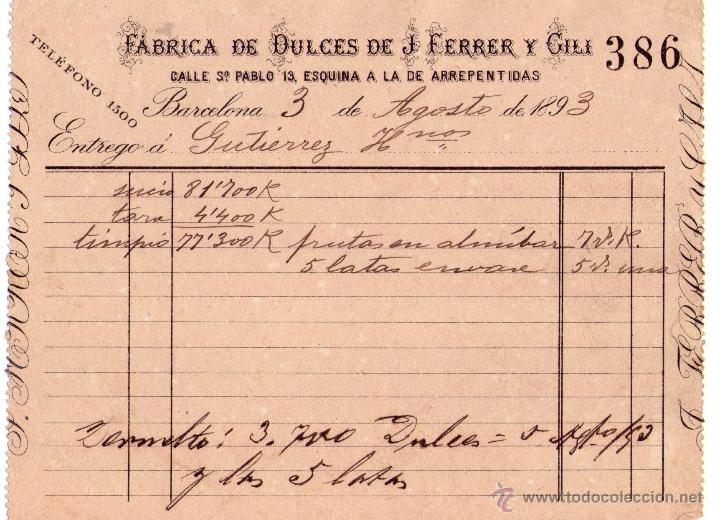 FÁBRICA DE DULCES DE J. FERRER Y GILI 386
CALLE Sn PABLO 13, ESQUINA A LA DE ARREPENTIDAS
TELÉFONO 1500
Barcelona 3 de Agosto de 1893
Entrego á Gutiérrez Hnos
sucio 81'700 K
tara 4'400 K
limpio 77'300 K frutas en almíbar 7 r. K.
5 latas envase 5 r. una
3.700 Dulces = 5 Agto/93
y las 5 latas
J. FERRER y GILI
J. FERRER y GILI
© www.todocoleccion.net